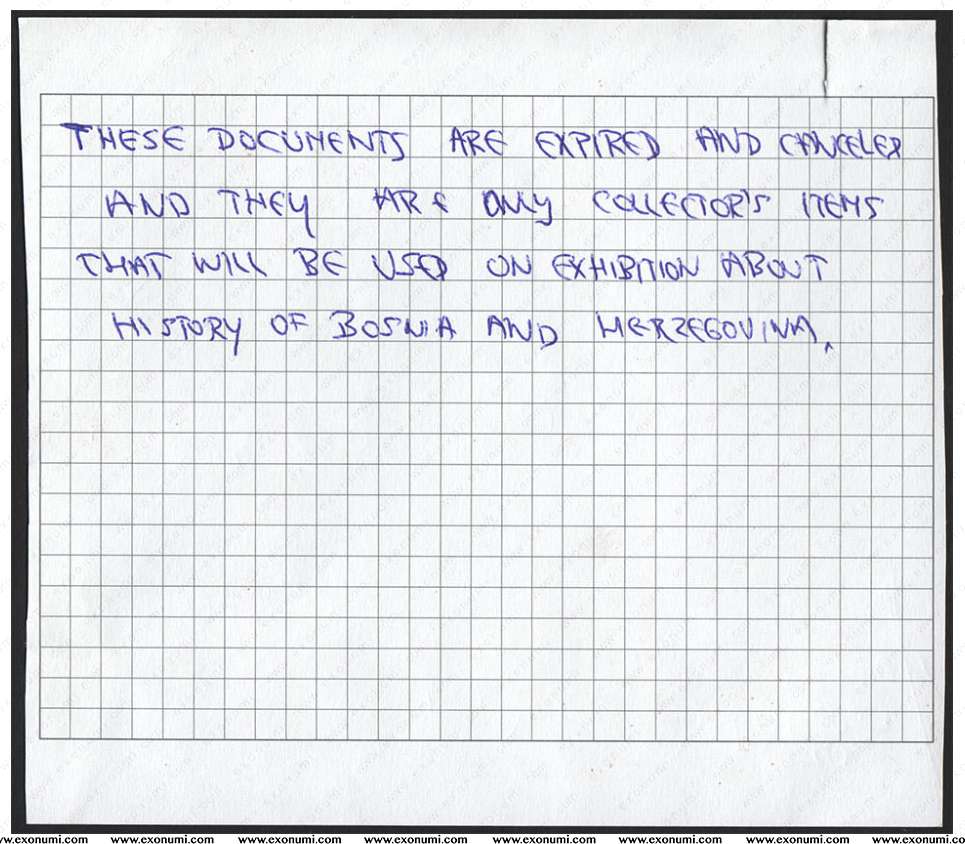 THESE DOCUMENTS ARE EXPIRED AND CANCELED
AND THEY ARE ONLY COLLECTOR'S ITEMS
THAT WILL BE USED ON EXHIBITION ABOUT
HISTORY OF BOSNIA AND HERZEGOVINA.
www.exonumi.com www.exonumi.com www.exonumi.com www.exonumi.com www.exonumi.com www.exonumi.com www.exonumi.com www.exonumi.co